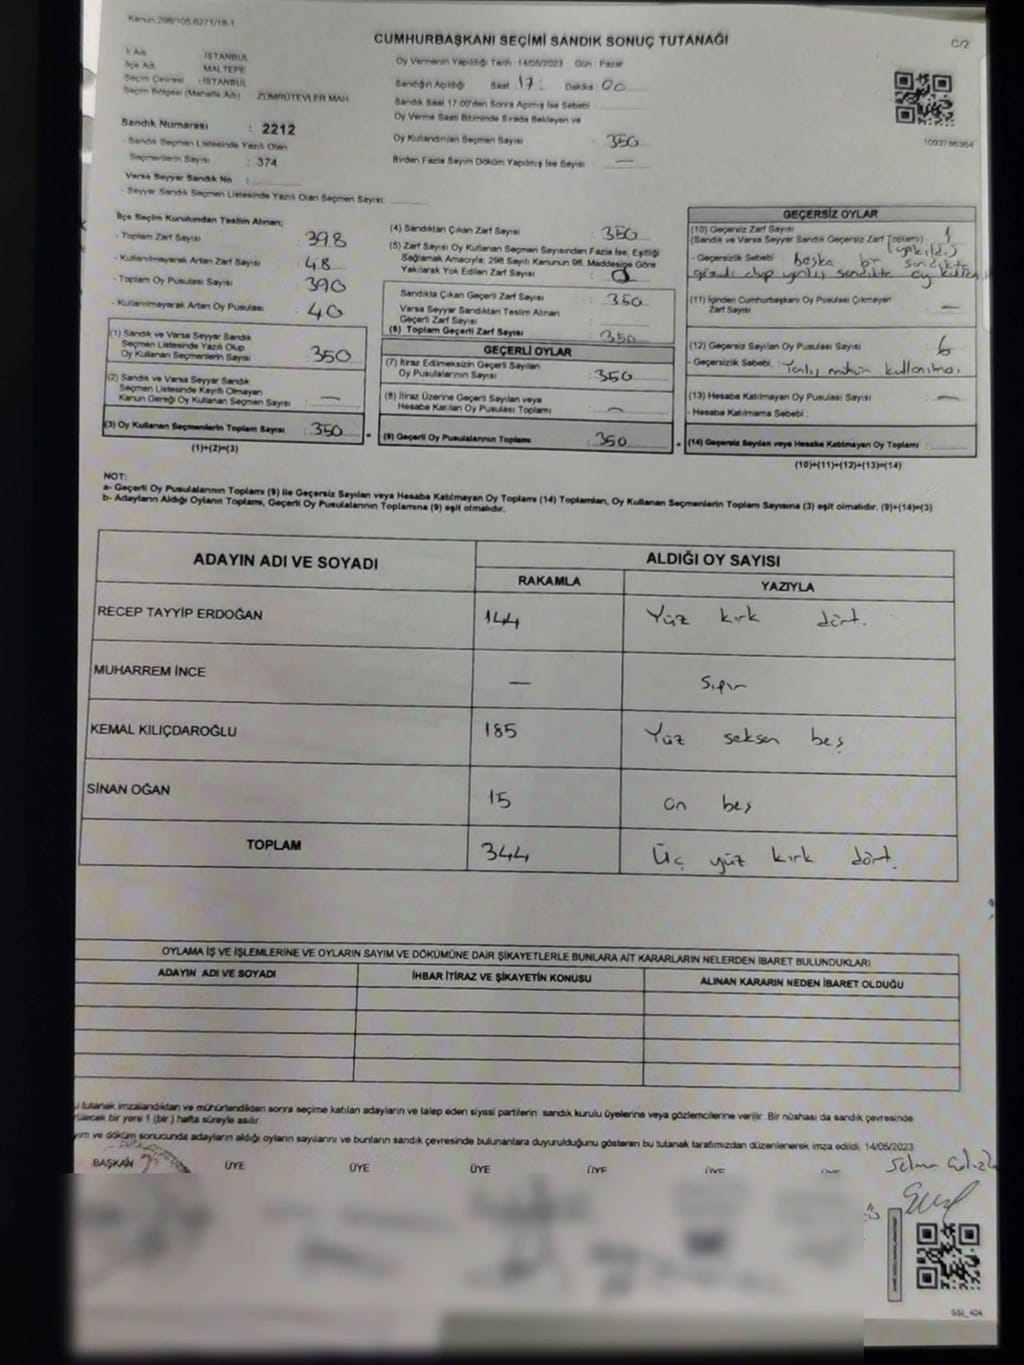 Kanun:298/105,6271/18-1
CUMHURBAŞKANI SEÇİMİ SANDIK SONUÇ TUTANAĞI
C/2
İl Adı : İSTANBUL
İlçe Adı : MALTEPE
Seçim Çevresi : İSTANBUL
Seçim Bölgesi (Mahalle Adı) : ZÜMRÜTEVLER MAH.
Sandık Numarası : 2212
- Sandık Seçmen Listesinde Yazılı Olan
Seçmenlerin Sayısı : 374
Varsa Seyyar Sandık No :
- Seyyar Sandık Seçmen Listesinde Yazılı Olan Seçmen Sayısı:
Oy Vermenin Yapıldığı Tarih : 14/05/2023 Gün : Pazar
Sandığın Açıldığı Saat 17: Dakika : 00
Sandık Saat 17.00'den Sonra Açılmış İse Sebebi :
Oy Verme Saati Bitiminde Sırada Bekleyen ve
Oy Kullandırılan Seçmen Sayısı : 350
Birden Fazla Sayım Döküm Yapılmış İse Sayısı : —
1093786364
İlçe Seçim Kurulundan Teslim Alınan;
- Toplam Zarf Sayısı : 398
- Kullanılmayarak Artan Zarf Sayısı : 48
- Toplam Oy Pusulası Sayısı : 390
- Kullanılmayarak Artan Oy Pusulası : 40
(1) Sandık ve Varsa Seyyar Sandık
Seçmen Listesinde Yazılı Olup
Oy Kullanan Seçmenlerin Sayısı : 350
(2) Sandık ve Varsa Seyyar Sandık
Seçmen Listesinde Kayıtlı Olmayan
Kanun Gereği Oy Kullanan Seçmen Sayısı : —
(3) Oy Kullanan Seçmenlerin Toplam Sayısı : 350
(1)+(2)=(3)
(4) Sandıktan Çıkan Zarf Sayısı : 350
(5) Zarf Sayısı Oy Kullanan Seçmen Sayısından Fazla İse, Eşitliği
Sağlamak Amacıyla; 298 Sayılı Kanunun 98. Maddesine Göre
Yakılarak Yok Edilen Zarf Sayısı :
Sandıkta Çıkan Geçerli Zarf Sayısı : 350
Varsa Seyyar Sandıktan Teslim Alınan
Geçerli Zarf Sayısı :
(6) Toplam Geçerli Zarf Sayısı : 350
GEÇERLİ OYLAR
(7) İtiraz Edilmeksizin Geçerli Sayılan
Oy Pusulalarının Sayısı : 350
(8) İtiraz Üzerine Geçerli Sayılan veya
Hesaba Katılan Oy Pusulası Toplamı : —
(9) Geçerli Oy Pusulalarının Toplamı : 350
GEÇERSİZ OYLAR
(10) Geçersiz Zarf Sayısı
(Sandık ve Varsa Seyyar Sandık Geçersiz Zarf Toplamı) : 1
(yakıldı)
- Geçersizlik Sebebi : başka bir sandıkta
olup yanlış sandıkta oy
(11) İçinden Cumhurbaşkanı Oy Pusulası Çıkmayan
Zarf Sayısı : —
(12) Geçersiz Sayılan Oy Pusulası Sayısı : 6
- Geçersizlik Sebebi : Yanlış mühür kullanılması
(13) Hesaba Katılmayan Oy Pusulası Sayısı : —
- Hesaba Katılmama Sebebi :
(14) Geçersiz Sayılan veya Hesaba Katılmayan Oy Toplamı :
(10)+(11)+(12)+(13)=(14)
NOT:
a- Geçerli Oy Pusulalarının Toplamı (9) ile Geçersiz Sayılan veya Hesaba Katılmayan Oy Toplamı (14) Toplamları, Oy Kullanan Seçmenlerin Toplam Sayısına (3) eşit olmalıdır. (9)+(14)=(3)
b- Adayların Aldığı Oyların Toplamı, Geçerli Oy Pusulalarının Toplamına (9) eşit olmalıdır.
ADAYIN ADI VE SOYADI
ALDIĞI OY SAYISI
RAKAMLA YAZIYLA
RECEP TAYYİP ERDOĞAN 144 Yüz kırk dört.
MUHARREM İNCE — Sıfır
KEMAL KILIÇDAROĞLU 185 Yüz seksen beş
SİNAN OĞAN 15 on beş
TOPLAM 344 Üç yüz kırk dört.
OYLAMA İŞ VE İŞLEMLERİNE VE OYLARIN SAYIM VE DÖKÜMÜNE DAİR ŞİKAYETLERLE BUNLARA AİT KARARLARIN NELERDEN İBARET BULUNDUKLARI
ADAYIN ADI VE SOYADI İHBAR İTİRAZ VE ŞİKAYETİN KONUSU ALINAN KARARIN NEDEN İBARET OLDUĞU
u tutanak imzalandıktan ve mühürlendikten sonra seçime katılan adayların ve talep eden siyasi partilerin sandık kurulu üyelerine veya gözlemcilerine verilir. Bir nüshası da sandık çevresinde
ülecek bir yere 1 (bir) hafta süreyle asılır.
yım ve döküm sonucunda adayların aldığı oyların sayılarını ve bunların sandık çevresinde bulunanlara duyurulduğunu gösteren bu tutanak tarafımızdan düzenlenerek imza edildi. 14/05/2023
BAŞKAN ÜYE ÜYE ÜYE ÜYE ÜYE ÜYE
SSI_404